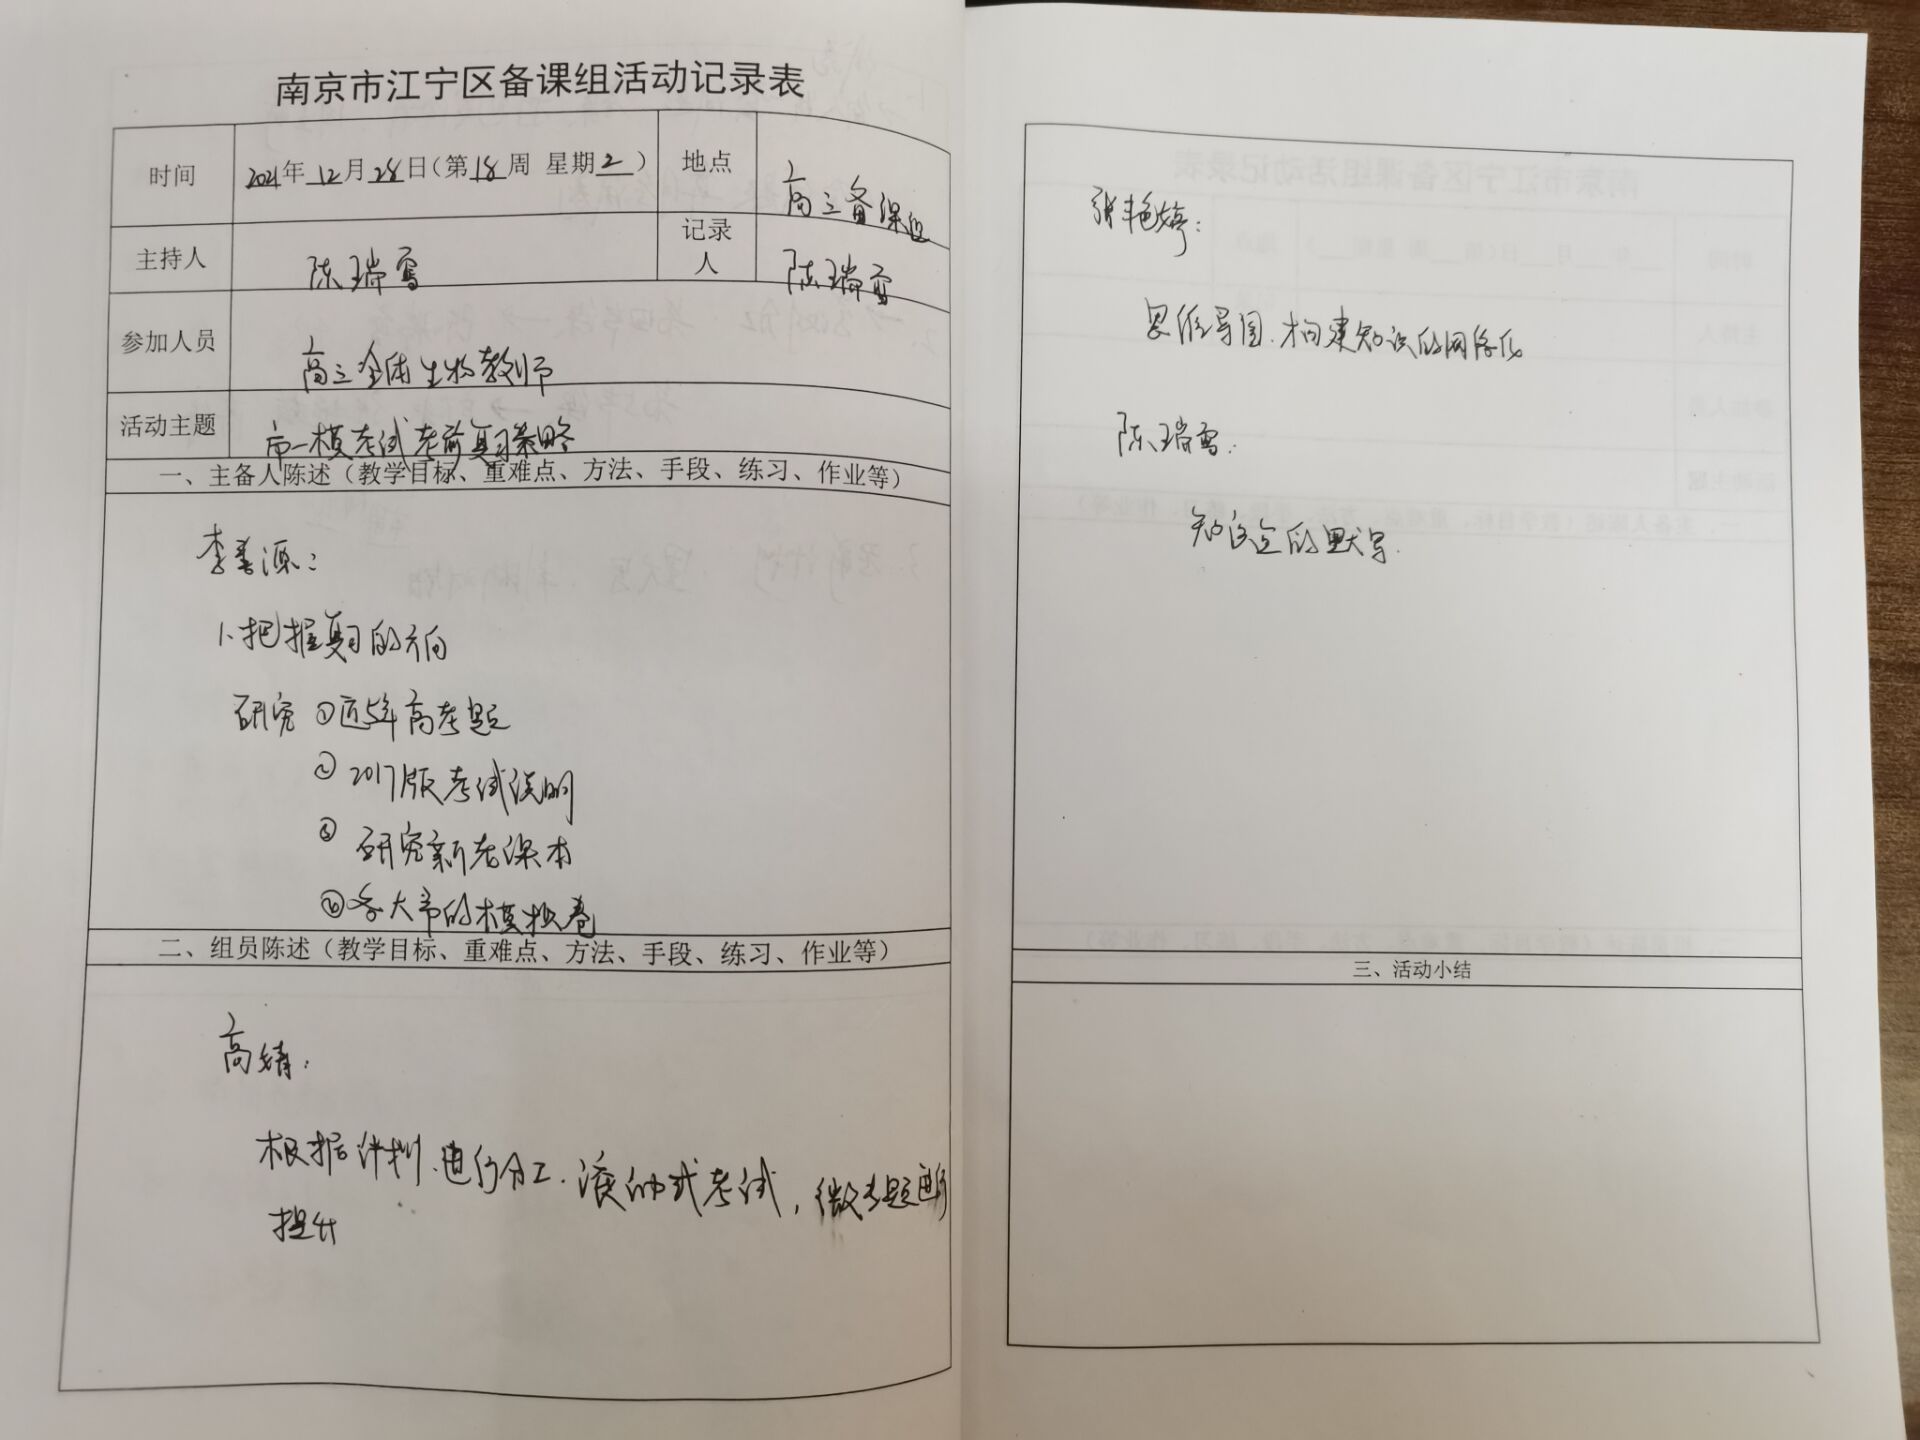 南京市江宁区备课组活动记录表
时间 2021年12月28日(第18周 星期2) 地点 高三备课组
主持人 陈瑞雪 记录人 陈瑞雪
参加人员 高三全体生物教师
活动主题 市一模考试考前复习策略
一、主备人陈述（教学目标、重难点、方法、手段、练习、作业等）
李善源：
1.把握复习的方向
研究 ①近5年高考题
② 2017版考试说明
③ 研究新老课本
④各大市的模拟卷
二、组员陈述（教学目标、重难点、方法、手段、练习、作业等）
高婧：
根据计划.进行分工.滚动式考试，微专题进行
提升
张艳婷：
思维导图.构建知识的网络化
陈瑞雪.
知识点的默写.
三、活动小结